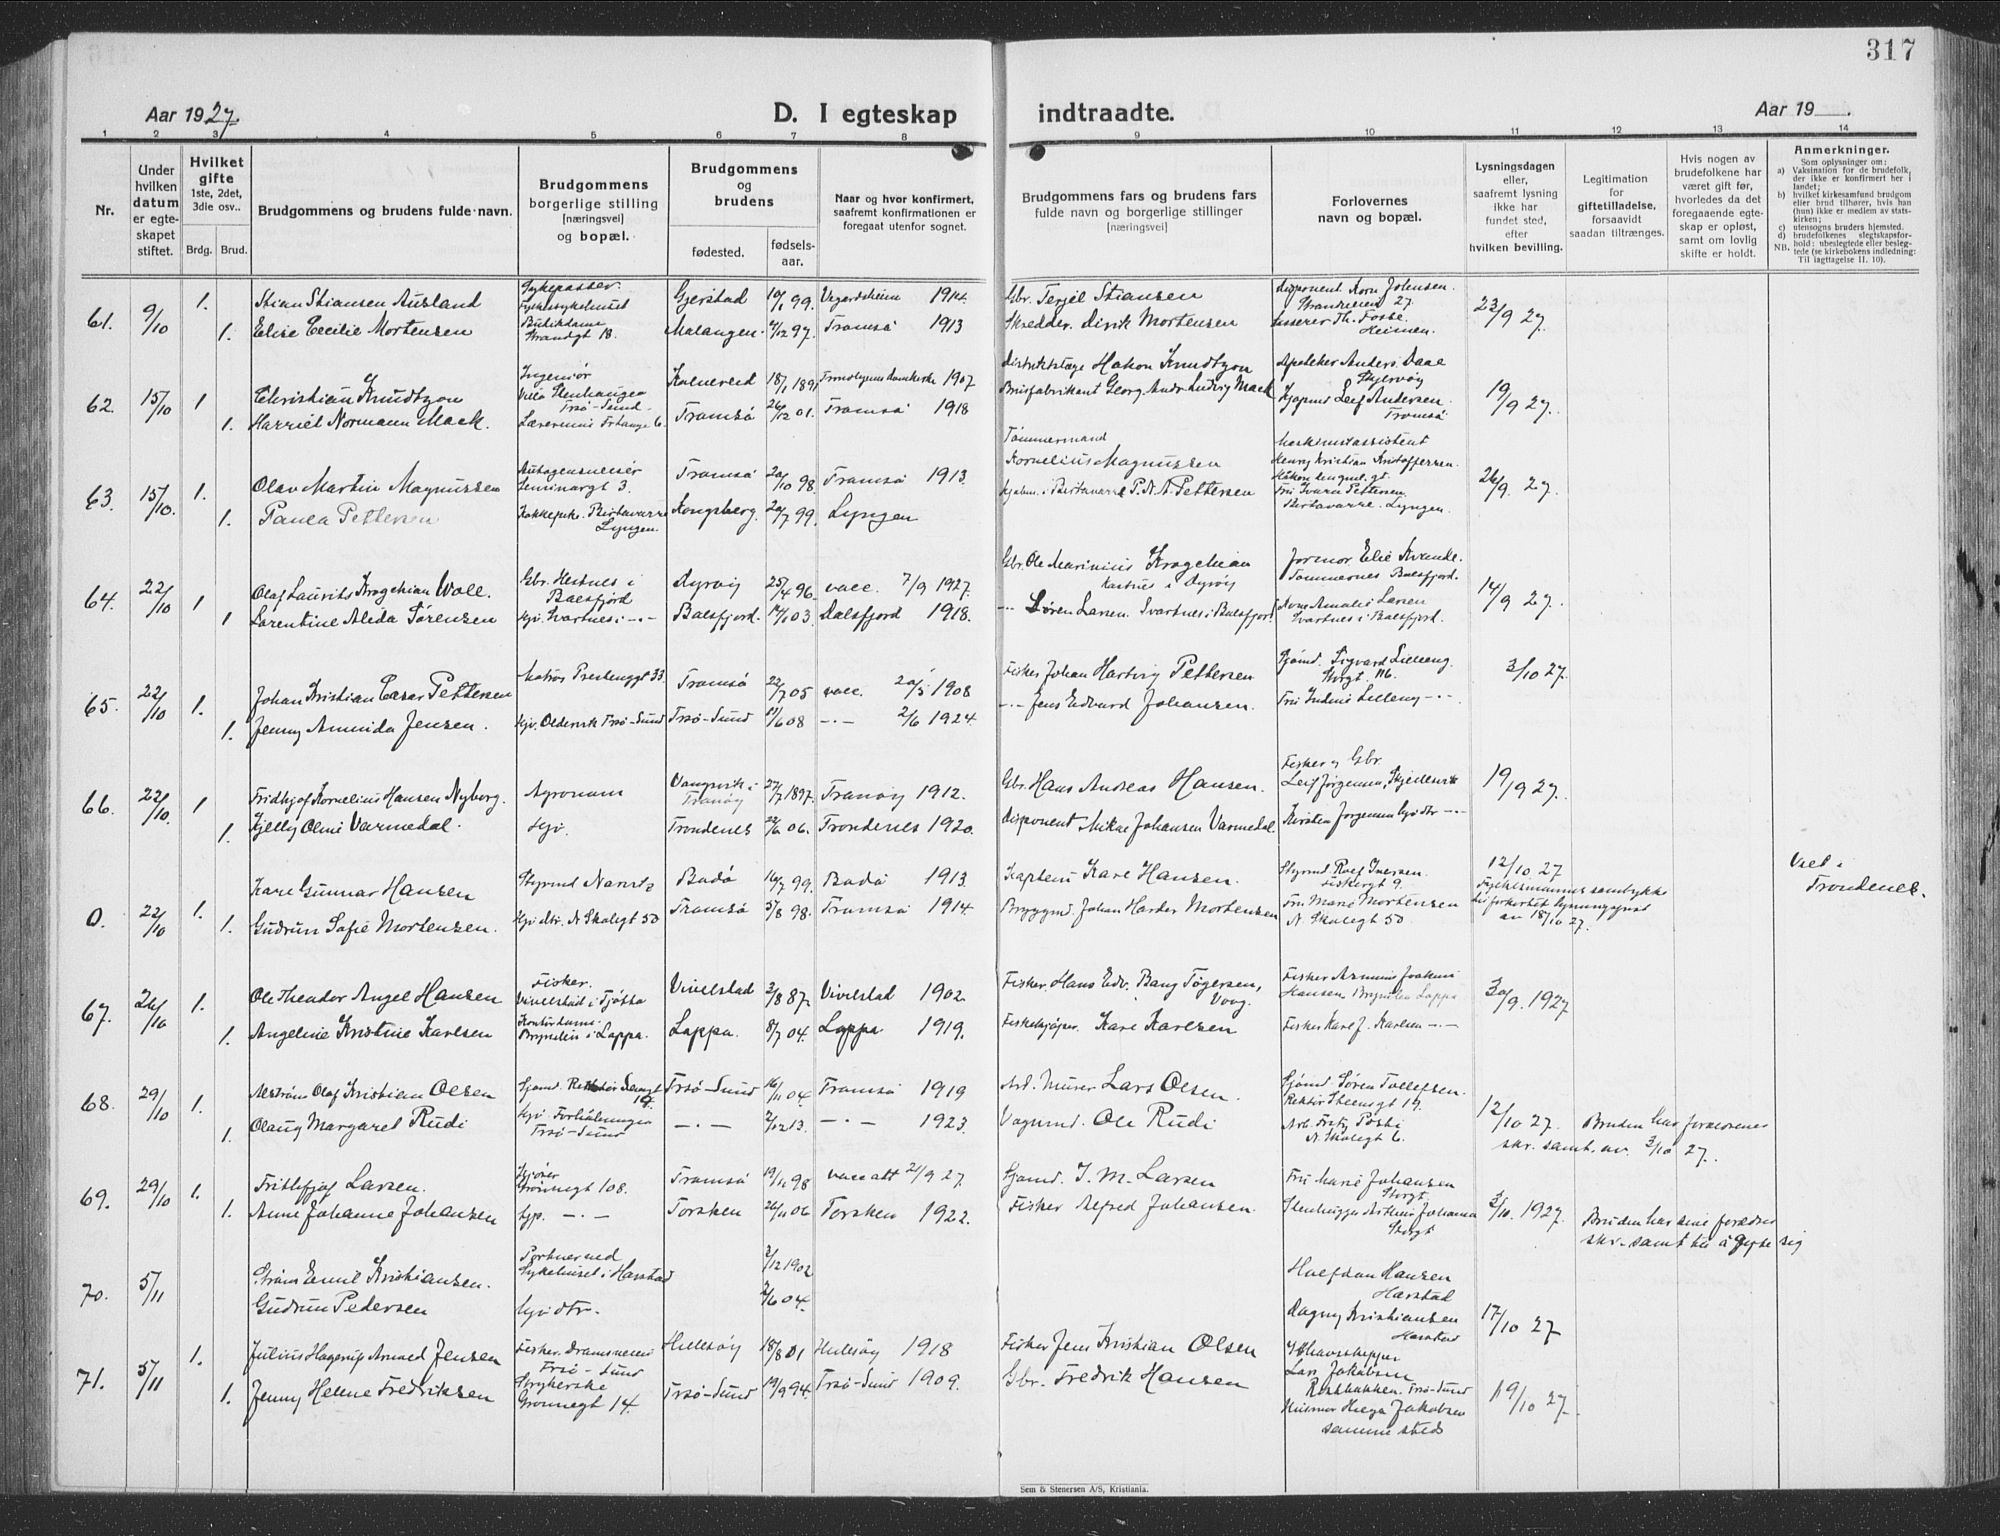 317
Aar 1927.
D. I egteskap indtraadte.
Aar 19 .
1 2 3 4 5 6 7 8 9 10 11 12 13 14
Nr.
Under hvilken datum er egte-skapet stiftet.
Hvilket gifte
1ste, 2det, 3die osv..
Brdg. Brud.
Brudgommens og brudens fulde navn.
Brudgommens borgerlige stilling
[næringsvei]
og bopæl.
Brudgommens og brudens
fødested.
fødsels-aar.
Naar og hvor konfirmert,
saafremt konfirmationen er foregaat utenfor sognet.
Brudgommens fars og brudens fars
fulde navn og borgerlige stillinger
[næringsvei]
Forlovernes navn og bopæl.
Lysningsdagen
eller, saafremt lysning ikke har fundet sted, efter
hvilken bevilling.
Legitimation for giftetilladelse, forsaavidt saadan tiltrænges.
Hvis nogen av brudefolkene har været gift før, hvorledes da det foregaaende egte-skap er opløst, samt om lovlig skifte er holdt.
Anmerkninger.
Som oplysninger om:
a) Vaksination for de brudefolk, der ikke er konfirmert her i landet;
b) hvilket kirkesamfund brudgom eller brud tilhører, hvis han (hun) ikke er medlem av stats-kirken;
c) utensogns bruders hjemsted.
d) brudefolkenes slegtskapsfor-hold: ubeslegtede eller besleg-tede (se kirkebokens indledning: Til Iagttagelse II. 10).
NB.
61. 9/10 1. Stian Stiansen Ausland Sykepasser Gjerstad 99. Vegardsheim 1914. Gbr. Terjel Stiansen 23/9 27.
1. Elise Cecilie Mortensen Strandgt 18. Malangen. 97. Tromsø 1913 Skredder. Divik Mortensen Th. Fosse. Heimen.
62. 15/10 1 Christian Knudtzon Ingeniør Kolvereid 18/1 1891 1907 Distriktslæge Hakon Knudtzon Apoteker Anders Daae Skjervøy 19/9 27.
1. Harriet Normann Mack. Tromsø 26/12 01. Tromsø 1918 Brusfabrikant Georg Andr. Ludvig Mack Leif Andersen. Tromsø
63. 15/10. 1. Olav Martin Magnussen Seminargt 3. Tromsø 20/10 98. Tromsø 1913. Tømmermand Kornelius Magnussen Henry Kristian Kristoffersen. 26/9 27.
1. Paula Pettersen Birtavarre Lyngen. Kongsberg. 20/7 99. Lyngen i Birtavarre P. A. A. Pettersen Pettersen Birtavarre. Lyngen.
64. 22/10 1 Olaf Laurits Kragehian Woll. Gbr. Hestnes i Balsfjord Dyrøy 25/4 96. vacc. 7/9 1927. Gbr. Ole Marinius Kragehian i Dyrøy Tommernes Balsfjord. 14/9 27.
1 Lorentine Alida Sørensen Hjv. Svartnes i -"- Balsfjord. 03. Balsfjord 1918. -"- Søren Larsen. Svartnes i Balsfjord. Amalie Larsen Svartnes i Balsfjord.
65. 22/10 1. Johan Kristian Cesar Pettersen Matros Prestenggt 33. Tromsø 22/7 05 vacc. 20/5 1908 Fisker Johan Hartvig Pettersen Sjømd. Sigvard Lilleeng. 3/10 27.
1. Jenny Arunida Jensen. Hjv. Oldervik Tsø-Sund Tsø-Sund 08 -"- 2/6 1924. -"- Jens Edvard Johansen. Fru Indine Lilleeng -"-
66. 22/10. 1 Fridthjof Kornelius Hansen Nyborg. Agronom Vangsvik i Tranøy 27/7 1897. Tranøy 1912. Gbr. Hans Andreas Hansen. Fisker og Gbr Leif Jørgensen, 19/9 27.
1. Kjelly Oline Varmedal. Hjv. Trondenes 22/6 06. Trondenes 1920. Disponent Mikal Johansen Varmedal. Kirsten Jørgensen -"-
0. 22/10 1. Kare Gunnar Hansen Styrmd Bodø 16/7 99. Bodø 1913. Kaptein Kare Hansen. Styrmd Rolf Iversen. Fiskergt 9. 12/10 27 Fylkesmannens samtykke av 18/10 27. Viet i Trondenes.
1. Gudrun Sofie Mortensen. Hjv. dtr. N Skolegt 50 Tromsø 5/8 98. Tromsø 1914. Bryggmd. Johan Harder Mortensen Fru Marie Mortensen N. Skolegt 50.
67. 26/10 1. Ole Theodor Angel Hansen Fisker. Vivelstad i Tjøtta Vivelstad 3/8 87. Vivelstad 1902. Fisker. Hans Edv. Bang Tøgersen, Fisker Hansen Loppa 30/9. 1927
1. Angeline Kristine Karlsen i Loppa. Loppa. 8/7 04. Loppa 1919. Fiskekjøper. Kare Karlsen Fisker Kare J. Karlsen -"-
68. 29/10 1. Olaf Kristian Olsen Sjømd. Tsø-Sund 16/11 04. Tromsø 1919 Arb. Murer Lars Olsen. Sjømd. Søren Tollefsen. Rektor Steensgt 19. 12/10 27. Bruden har foreldrenes skr. samt. av 3/10 27.
1. Olaug Margaret Rudi Tsø-Sund -"- 2/12 13. -"- 1923. Vognmd. Ole Rudi Arb. N Skolegt 6.
69. 29/10 1. Fritthjof Larsen. Grønnegt 108. Tromsø 19/11 98 vacc att 21/9 27. Sjømd. J. M. Larsen Fru Marie Johansen Storgt. 3/10. 1927. Bruden har sine forældres skr. samt til å gifte sig
1. Anne Johanne Johansen -"- Torsken 26/11 06 Torsken 1922. Fisker Alfred Johansen. Stenhugger Arthur Johansen Storgt
70. 5/11 Emil Kristiansen. Portner ved Sykehuset i Harstad 2/12 1902 Halfdan Hansen Harstad 17/10 27
Gudrun Pedersen Hjv dtr. 2/6 04. Dagny Kristiansen Harstad
71. 5/11 1. Julius Hagerup Arnved Jensen Fisker. Tsø-Sund Hillesøy 18/8 01 Hillesøy 1918 Fisker Jens Kristian Olsen Ishavsskipper Lars Jakobsen 19/10 27.
1. Jenny Helene Fredriksen Strykerske Grønnegt 14. Tsø-Sund 19/9 94. Tsø-Sund 1909. Gbr. Fredrik Hansen Tsø-Sund Helga Jakobsen samme sted
Sem & Stenersen A/S, Kristiania.